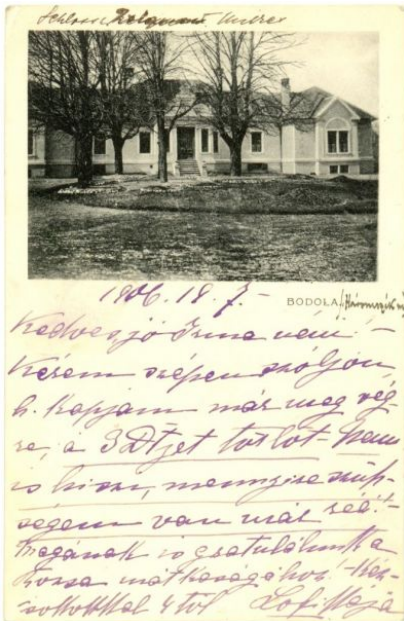 Schloss Béldi
1906. 18. 7.-
BODOLA / Háromszék m
Kedves jó Irma néni -
Kérem szépen szóljon,
h. kapjam már meg vég-
re, a 3 tortot - Nem
is hiszi, mennyire szük-
ségem van már reá! -
Magának is gratulálunk a
Rózsa mátkaságához! - Kéz-
csókokkal